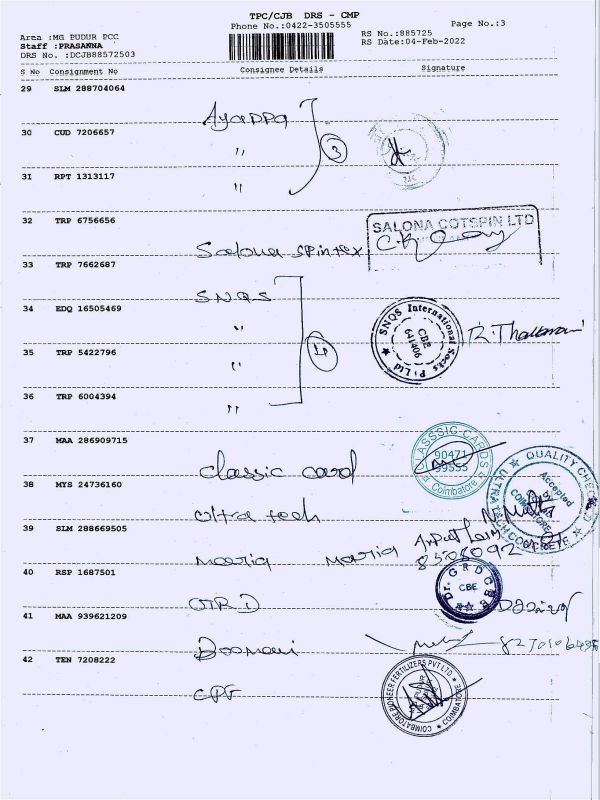 TPC/CJB DRS - CMP
Phone No.:0422-3505555
Page No.:3
Area :MG PUDUR PCC
Staff :PRASANNA
DRS No. :DCJB88572503
RS No.:885725
RS Date:04-Feb-2022
S No Consignment No Consignee Details Signature
29 SLM 288704064
Ayappa
30 CUD 7206657
"
3
31 RPT 1313117
"
32 TRP 6756656
SALONA COTSPIN LTD
Salona spintex
33 TRP 7662687
SNQS
34 EDQ 16505469
"
SNQS International Socks P. Ltd
CBE
641406
35 TRP 5422796
"
4
36 TRP 6004394
"
37 MAA 286909715
classic card
CLASSSIC CARDS
90471
99555
Coimbatore
38 MYS 24736160
ultra tech
QUALITY CHECKED
Accepted
COIMBATORE
ULTRATECH CONCRETE
39 SLM 288669505
maria maria
40 RSP 1687501
GRD
Dr. GRD
CBE
41 MAA 939621209
42 TEN 7208222
CPF
COIMBATORE PIONEER FERTILIZERS PVT LTD.
COIMBATORE